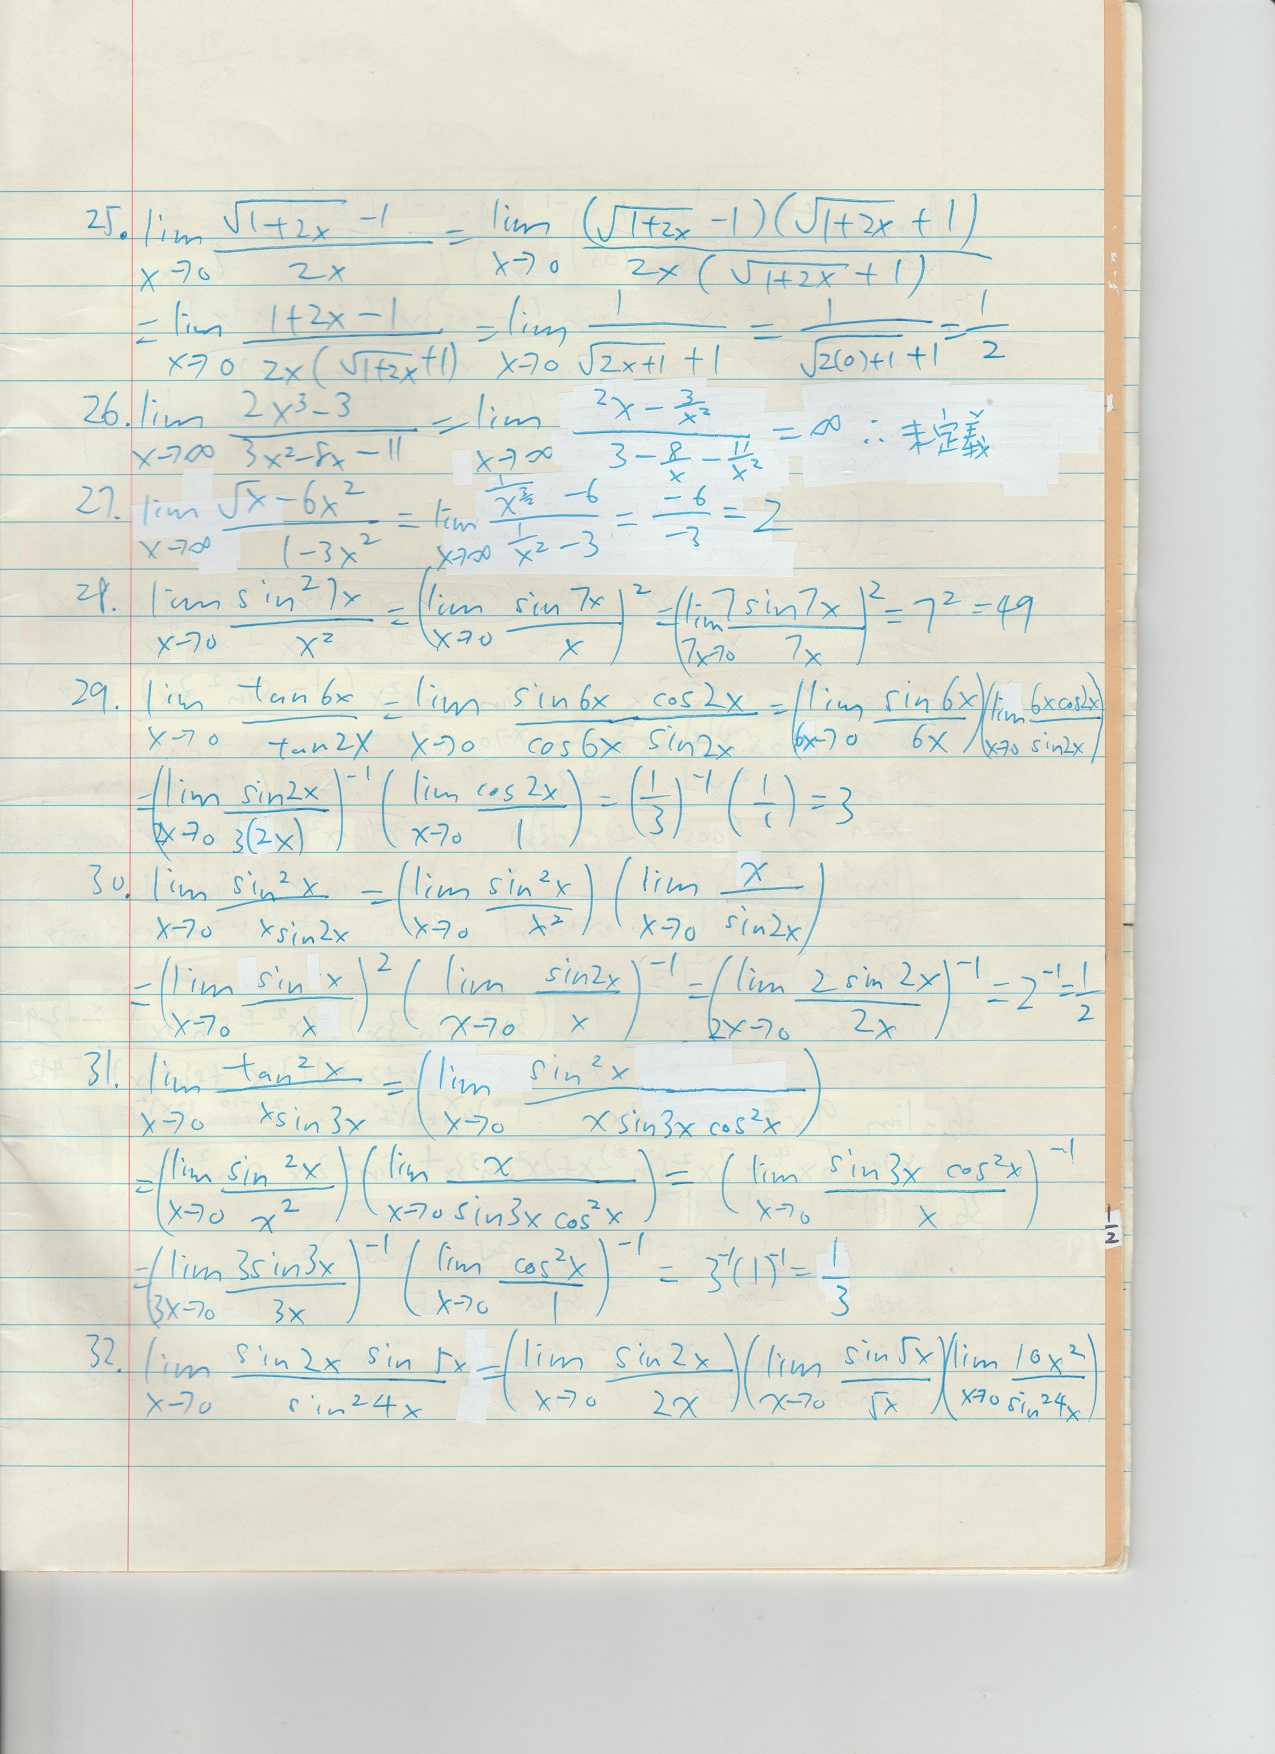 25. lim x→0 (√(1+2x) -1)/(2x) = lim x→0 ((√(1+2x) -1)(√(1+2x) +1))/(2x(√(1+2x) +1))
= lim x→0 (1+2x-1)/(2x(√(1+2x) +1)) = lim x→0 1/(√(2x+1) +1) = 1/(√(2(0)+1) +1) = 1/2
26. lim x→∞ (2x³-3)/(3x²-8x-11) = lim x→∞ (2x - 3/x²)/(3 - 8/x - 11/x²) = ∞ ∴ 未定義
27. lim x→∞ (√x - 6x²)/(1-3x²) = lim x→∞ (1/x^(3/2) - 6)/(1/x² - 3) = -6/-3 = 2
28. lim x→0 (sin²7x)/(x²) = (lim x→0 (sin7x)/x)² = (lim 7x→0 (7sin7x)/(7x))² = 7² = 49
29. lim x→0 (tan6x)/(tan2x) = lim x→0 (sin6x cos2x)/(cos6x sin2x) = (lim 6x→0 (sin6x)/(6x))(lim x→0 (6xcos2x)/(sin2x))
= (lim 2x→0 (sin2x)/(3(2x)))⁻¹ (lim x→0 (cos2x)/1) = (1/3)⁻¹ (1/1) = 3
30. lim x→0 (sin²x)/(xsin2x) = (lim x→0 (sin²x)/(x²)) (lim x→0 x/(sin2x))
= (lim x→0 (sin x)/x)² (lim x→0 (sin2x)/x)⁻¹ = (lim 2x→0 (2sin2x)/(2x))⁻¹ = 2⁻¹ = 1/2
31. lim x→0 (tan²x)/(xsin3x) = (lim x→0 (sin²x)/(xsin3xcos²x))
= (lim x→0 (sin²x)/(x²)) (lim x→0 x/(sin3xcos²x)) = (lim x→0 (sin3x cos²x)/x)⁻¹
= (lim 3x→0 (3sin3x)/(3x))⁻¹ (lim x→0 (cos²x)/1)⁻¹ = 3⁻¹(1)⁻¹ = 1/3
32. lim x→0 (sin2x sin5x)/(sin²4x) = (lim x→0 (sin2x)/(2x))(lim x→0 (sin5x)/(5x))(lim x→0 (10x²)/(sin²4x))